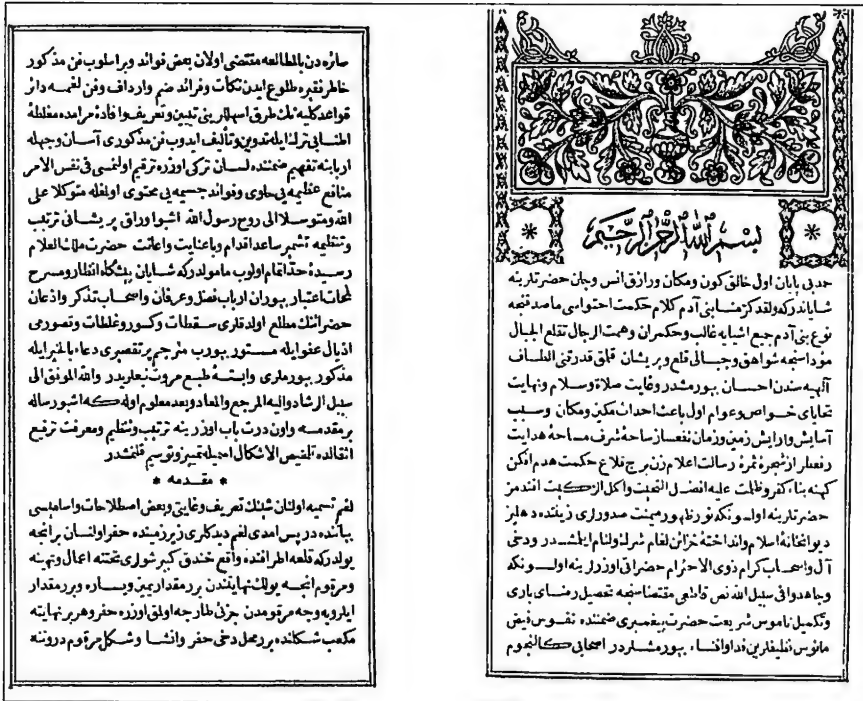 بسم الله الرحمن الرحيم
حمد بی پایان اول خالق کون ومکان ورازق انس وجان حضرتلرینه
شایاندرکه ولقد کرمنا بنی آدم کلام حکمت احتواسی ماصدقنجه
نوع بنی آدم جمیع اشیایه غالب وحکمران وهمت الرجال تقلع الجبال
مؤداسنجه شواهق وجبالی قلع وپریشان قیلمق قدرتنی الطاف
آلهیه سندن احسان بیورمشدر وغایت صلاة وسلام ونهایت
تحایای خواص وعوام اول باعث احداث مکین ومکان وسبب
آسایش وآرایش زمین وزمان
شجرهٔ ثمرهٔ رسالت اعلام زن برج قلاع حکمت هدم افکن
کهنه بناء کفر وظلمت علیه افضل التحیت واکمل
حضرتلرینه اولسونکه نور ظهور میمنت صدورلری زیننده دهلیز
دیوانخانهٔ اسلام وانداختهٔ خزائن لغام شرك ولئام ایلمشدر ودخی
آل واصحاب کرام ذوی الاحترام حضراتی اوزرلرینه اولسونکه
وجاهدوا فی سبیل الله نص قاطعی مقتضاسنجه تحصیل رضای باری
وتکمیل ناموس شریعت حضرت پیغمبری ضمننده نفوس فیض
مأنوس نظیفلرین فدا وافناء بیورمشلردر اصحابی کالنجوم
سائره دن بالمطالعه مقتضی اولان بعض فوائد وبر اسلوب فن مذکور
خاطر فقیره طلوع ایدن نکات وفرائد ضم وارداف وفن لغمه دائر
قواعد کلیه نك طرق اسهللرینی تبیین وتعریف وافادهٔ مرامده مغلطهٔ
اطنابی ترك ایله تدوین وتألیف ایدوب فن مذکوری آسان وجهله
اربابنه تفهیم ضمننده لسان ترکی اوزره ترقیم اولنمسی فی نفس الامر
منافع عظیمه یی حاوی وفوائد جسیمه یی محتوی اولمغله متوکلا علی
الله ومتوسلا الی روح رسول الله اشبو اوراق پریشانی ترتیب
وتنظیمه تشمیر ساعد اقدام وباعنایت واعانت حضرت ملك العلام
رسیدهٔ حد اتمام اولوب مأمولدرکه شایان پیشگاه انظار ومسرح
لمحات اعتبار بیوران ارباب فضل وعرفان واصحاب تذکر واذعان
حضراتنك مطلع اولدقلری سقطات وکسور وغلطات وقصورمی
اذیال عفو ایله مستور بیوروب مترجم پرتقصیری دعاء بالخیر ایله
مذکور بیورملری وابستهٔ طبع مروت والله الموفق الی
سبیل الرشاد والیه المرجع والمعاد وبعد معلوم اوله که اشبو رساله
بر مقدمه واون درت باب اوزرینه ترتیب وتنظیم ومعرفت ترفیع
اثقالده تلخیص الاشکال اسمیله تمییز وتوسیم قلنمشدر
* مقدمه *
لغم تسمیه اولنان شیئك تعریف وغایتی وبعض اصطلاحات واسامیسی
بیاننده در پس امدی لغم دیدکلری زیر زمینده حفر اولنان بر انجه
یولدرکه قلعه اطرافنده واقع خندق کبیر شولری تحتنه اعمال وتهیئه
ومرقوم انجه یولك نهایتندن بر مقدار یمین ویساره وبر مقدار
ایلرویه وجه مرقومدن جزئی طارجه اولمق اوزره حفر وهر بر نهایته
مکعب شکلنده بر محل دخی حفر وانشا وشکل مرقوم دروننه